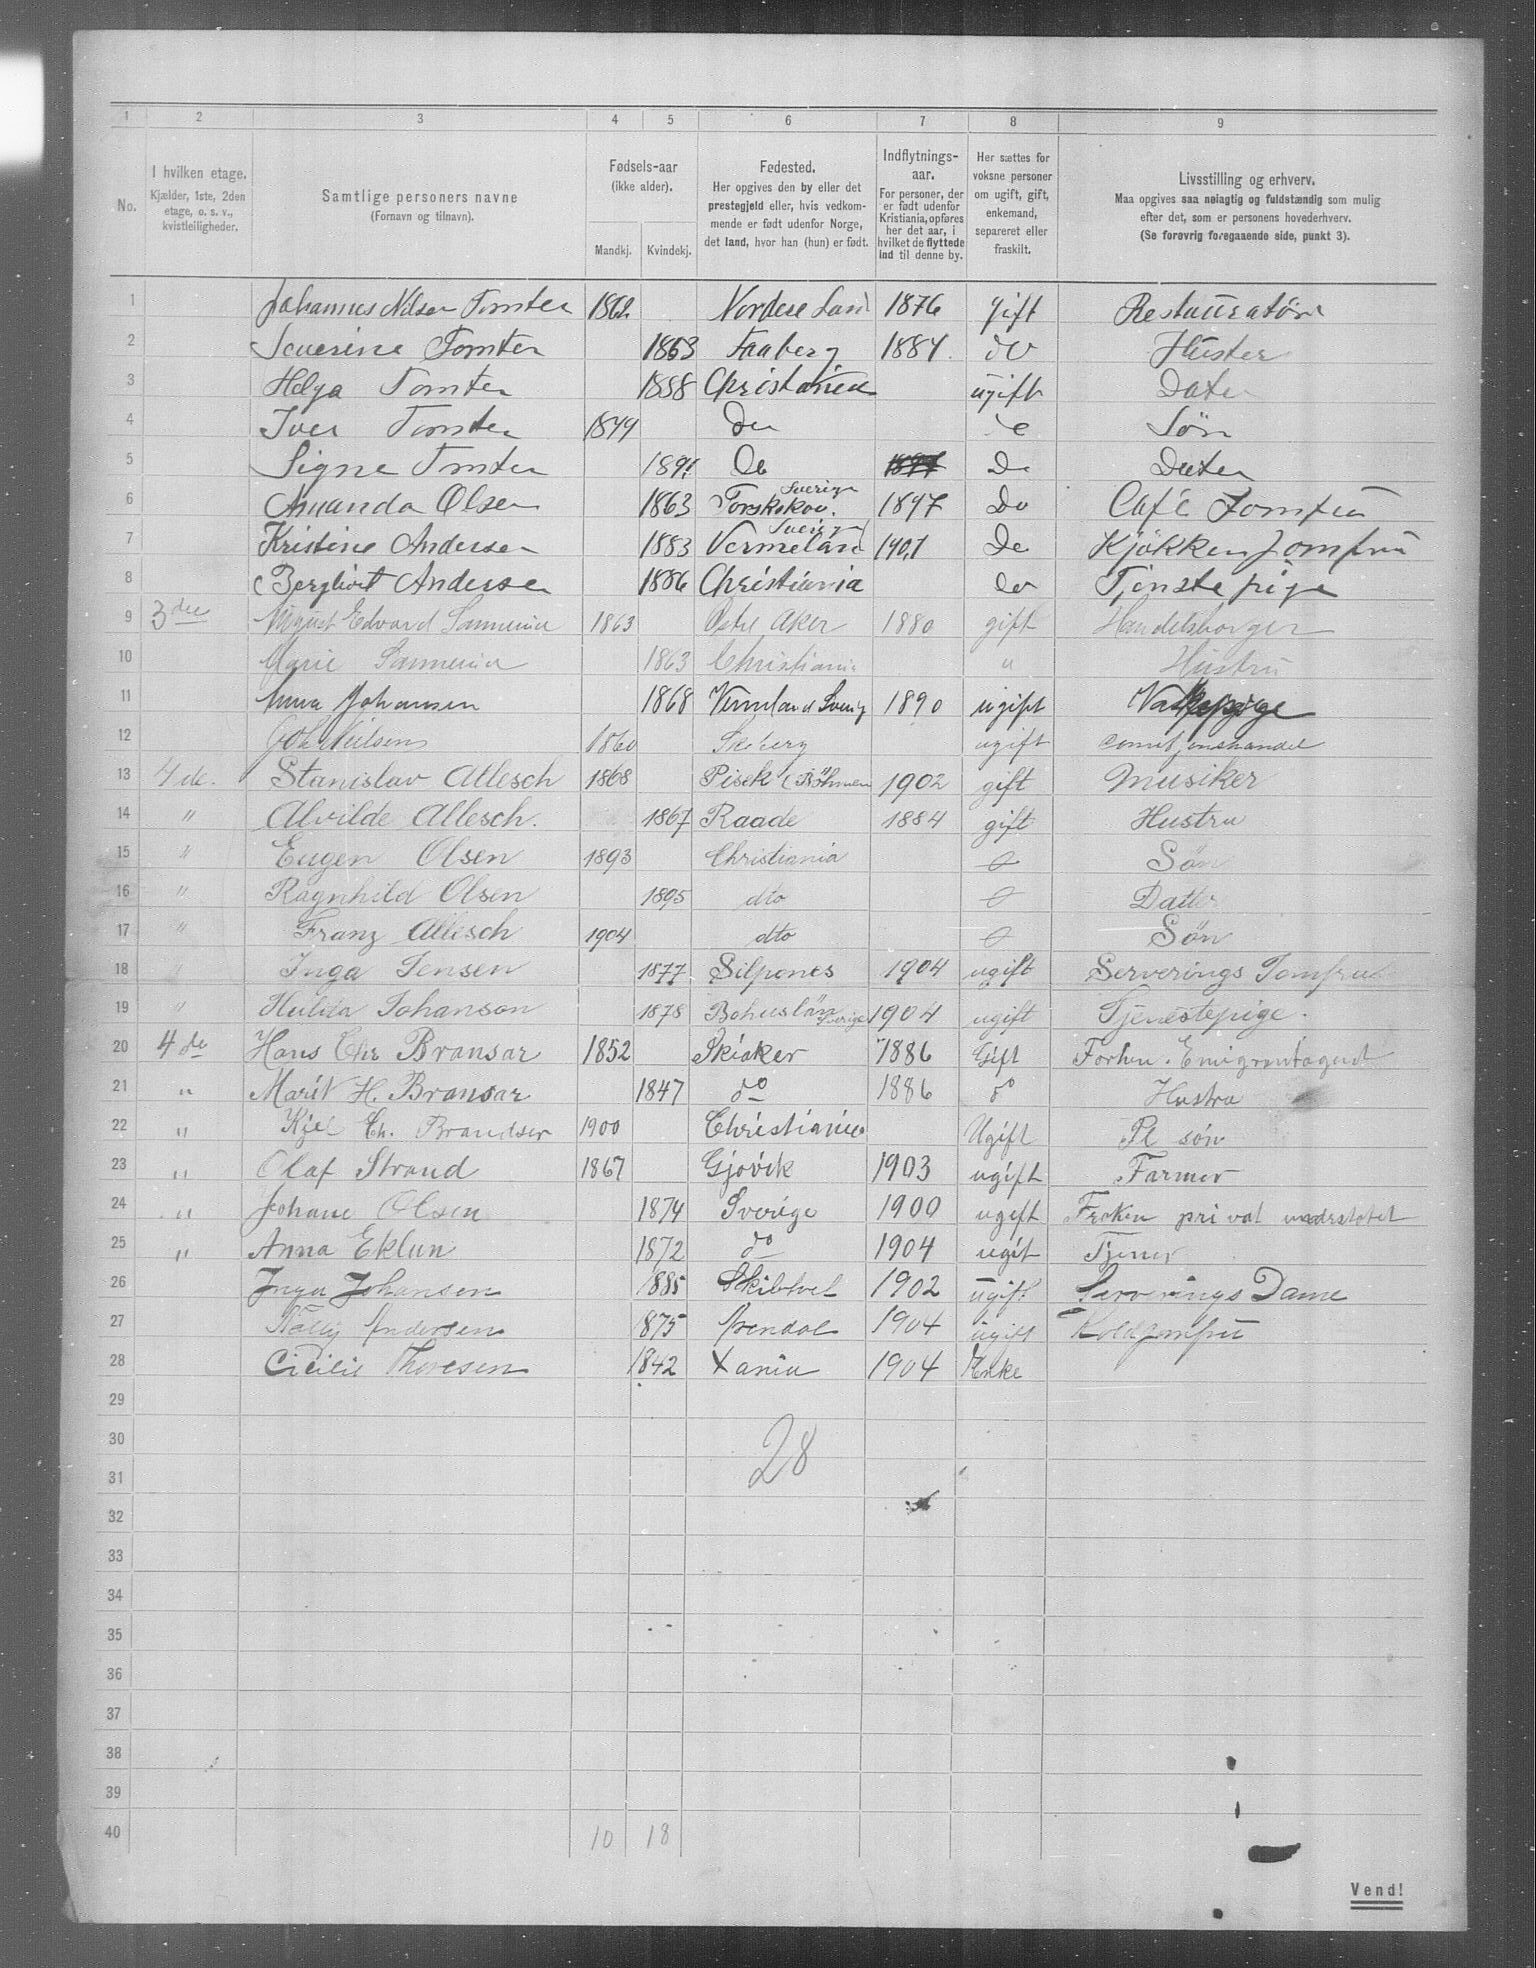 1 2 3 4 5 6 7 8 9
No.
I hvilken etage.
Kjælder, 1ste, 2den
etage, o. s. v.,
kvistleiligheder.
Samtlige personers navne
(Fornavn og tilnavn).
Fødsels-aar
(ikke alder).
Mandkj. Kvindekj.
Fødested.
Her opgives den by eller det
prestegjeld eller, hvis vedkom-
mende er født udenfor Norge,
det land, hvor han (hun) er født.
Indflytnings-
aar.
For personer, der
er født udenfor
Kristiania, opføres
her det aar, i
hvilket de flyttede
ind til denne by.
Her sættes for
voksne personer
om ugift, gift,
enkemand,
separeret eller
fraskilt.
Livsstilling og erhverv.
Maa opgives saa nøiagtig og fuldstændig som mulig
efter det, som er personens hovederhverv.
(Se forøvrig foregaaende side, punkt 3).
1 Johannes Nilsen Tomter 1862 Nordere Land 1876 gift Restauratør
2 Severine Tomter 1863 Faaberg 1884. do Huster
3 Helga Tomter 1888 Christania ugift Dater
4 Iver Tomter Do Søn
5 Signe Tomter 1891 Do Do Dater
6 Amanda Olsen 1863 Torskskov. Sverige 1897 Do Café Jomfru
7 Kristine Andersen 1883 Vermeland Sverige 1901 Do Kjøkkenjomfru
8 Bergliot Andersen 1886 Christiania Do Tjnstepige
9 3die August Edvard 1863 Østre Aker 1880 gift Handelsborger
10 Marie 1863 Christiania " Hustru
11 Anna Johansen 1868 Vermland Sverig 1890 ugift
12 Joh Nielsen 1860 ugift
13 4de. Stanislav Allesch 1868 Pisek (Böhmen 1902 gift Musiker
14 " Alvilde Allesch. 1867 Raade 1884 gift Hustru
15 " Eugen Olsen 1893 Christiania Søn
16 " Ragnhild Olsen 1895 dto Datter
17 " Franz Allesch 1904 dto Søn
18 " Inga Jensen 1877 1904 ugift Serverings Jomfru
19 " Hulda Johanson 1878 Bohuslän Sverige 1904 ugift Tjenestepige.
20 4de Hans Chr Bransar 1852 Skiaker 1886 Gift Forhv. Emigrantagent
21 " Marit H. Bransar 1847 do 1886 do Hustru
22 " Kjel Ch. Brandser 1900 Christiania Ugift Pl søn
23 " Olaf Strand 1867 Gjøvik 1903 ugift Farmer
24 " Johane Olsen 1874 Sverige 1900 ugift Frøken privat
25 " Anna Eklun 1872 do 1904 ugit Tjener
26 Inga Johansen 1885 Skibtvet 1902 ugift Serverings Dame
27 Andersen 1875 Arendal 1904 ugift Koldjomfru
28 Thoresen 1842 Xania 1904 Enke
29
30 28
31
32
33
34
35
36
37
38
39
40 10 18
Vend!